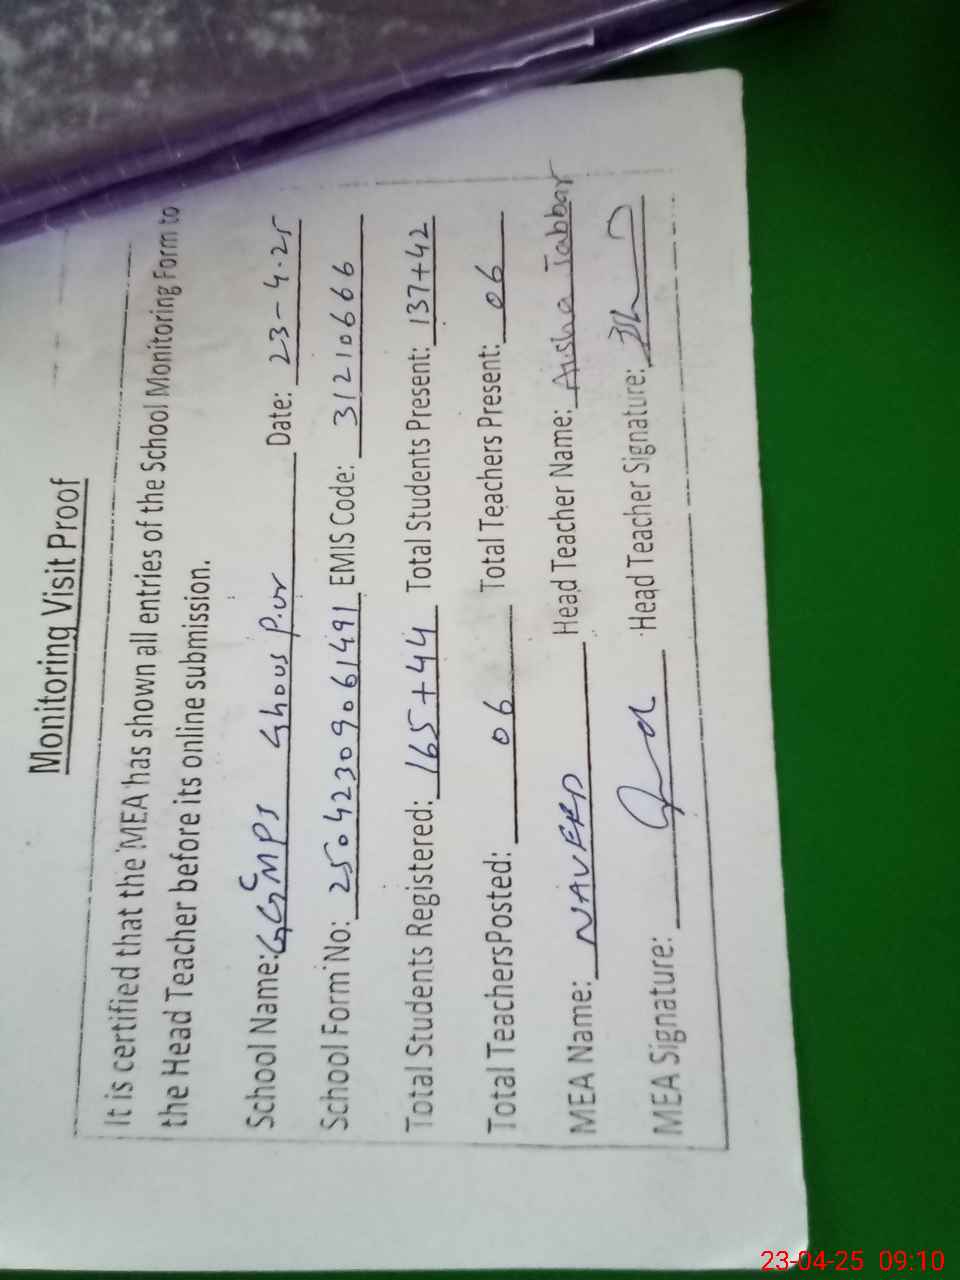 Monitoring Visit Proof
It is certified that the MEA has shown all entries of the School Monitoring Form to
the Head Teacher before its online submission.
School Name: GGCMPS Ghous Pur Date: 23-4-25
School Form No: 25042309061491 EMIS Code: 31210666
Total Students Registered: 165+44 Total Students Present: 137+42
Total TeachersPosted: 06 Total Teachers Present: 06
MEA Name: NAVEED Head Teacher Name: Aisha Jabbar
MEA Signature: Head Teacher Signature:
23-04-25 09:10